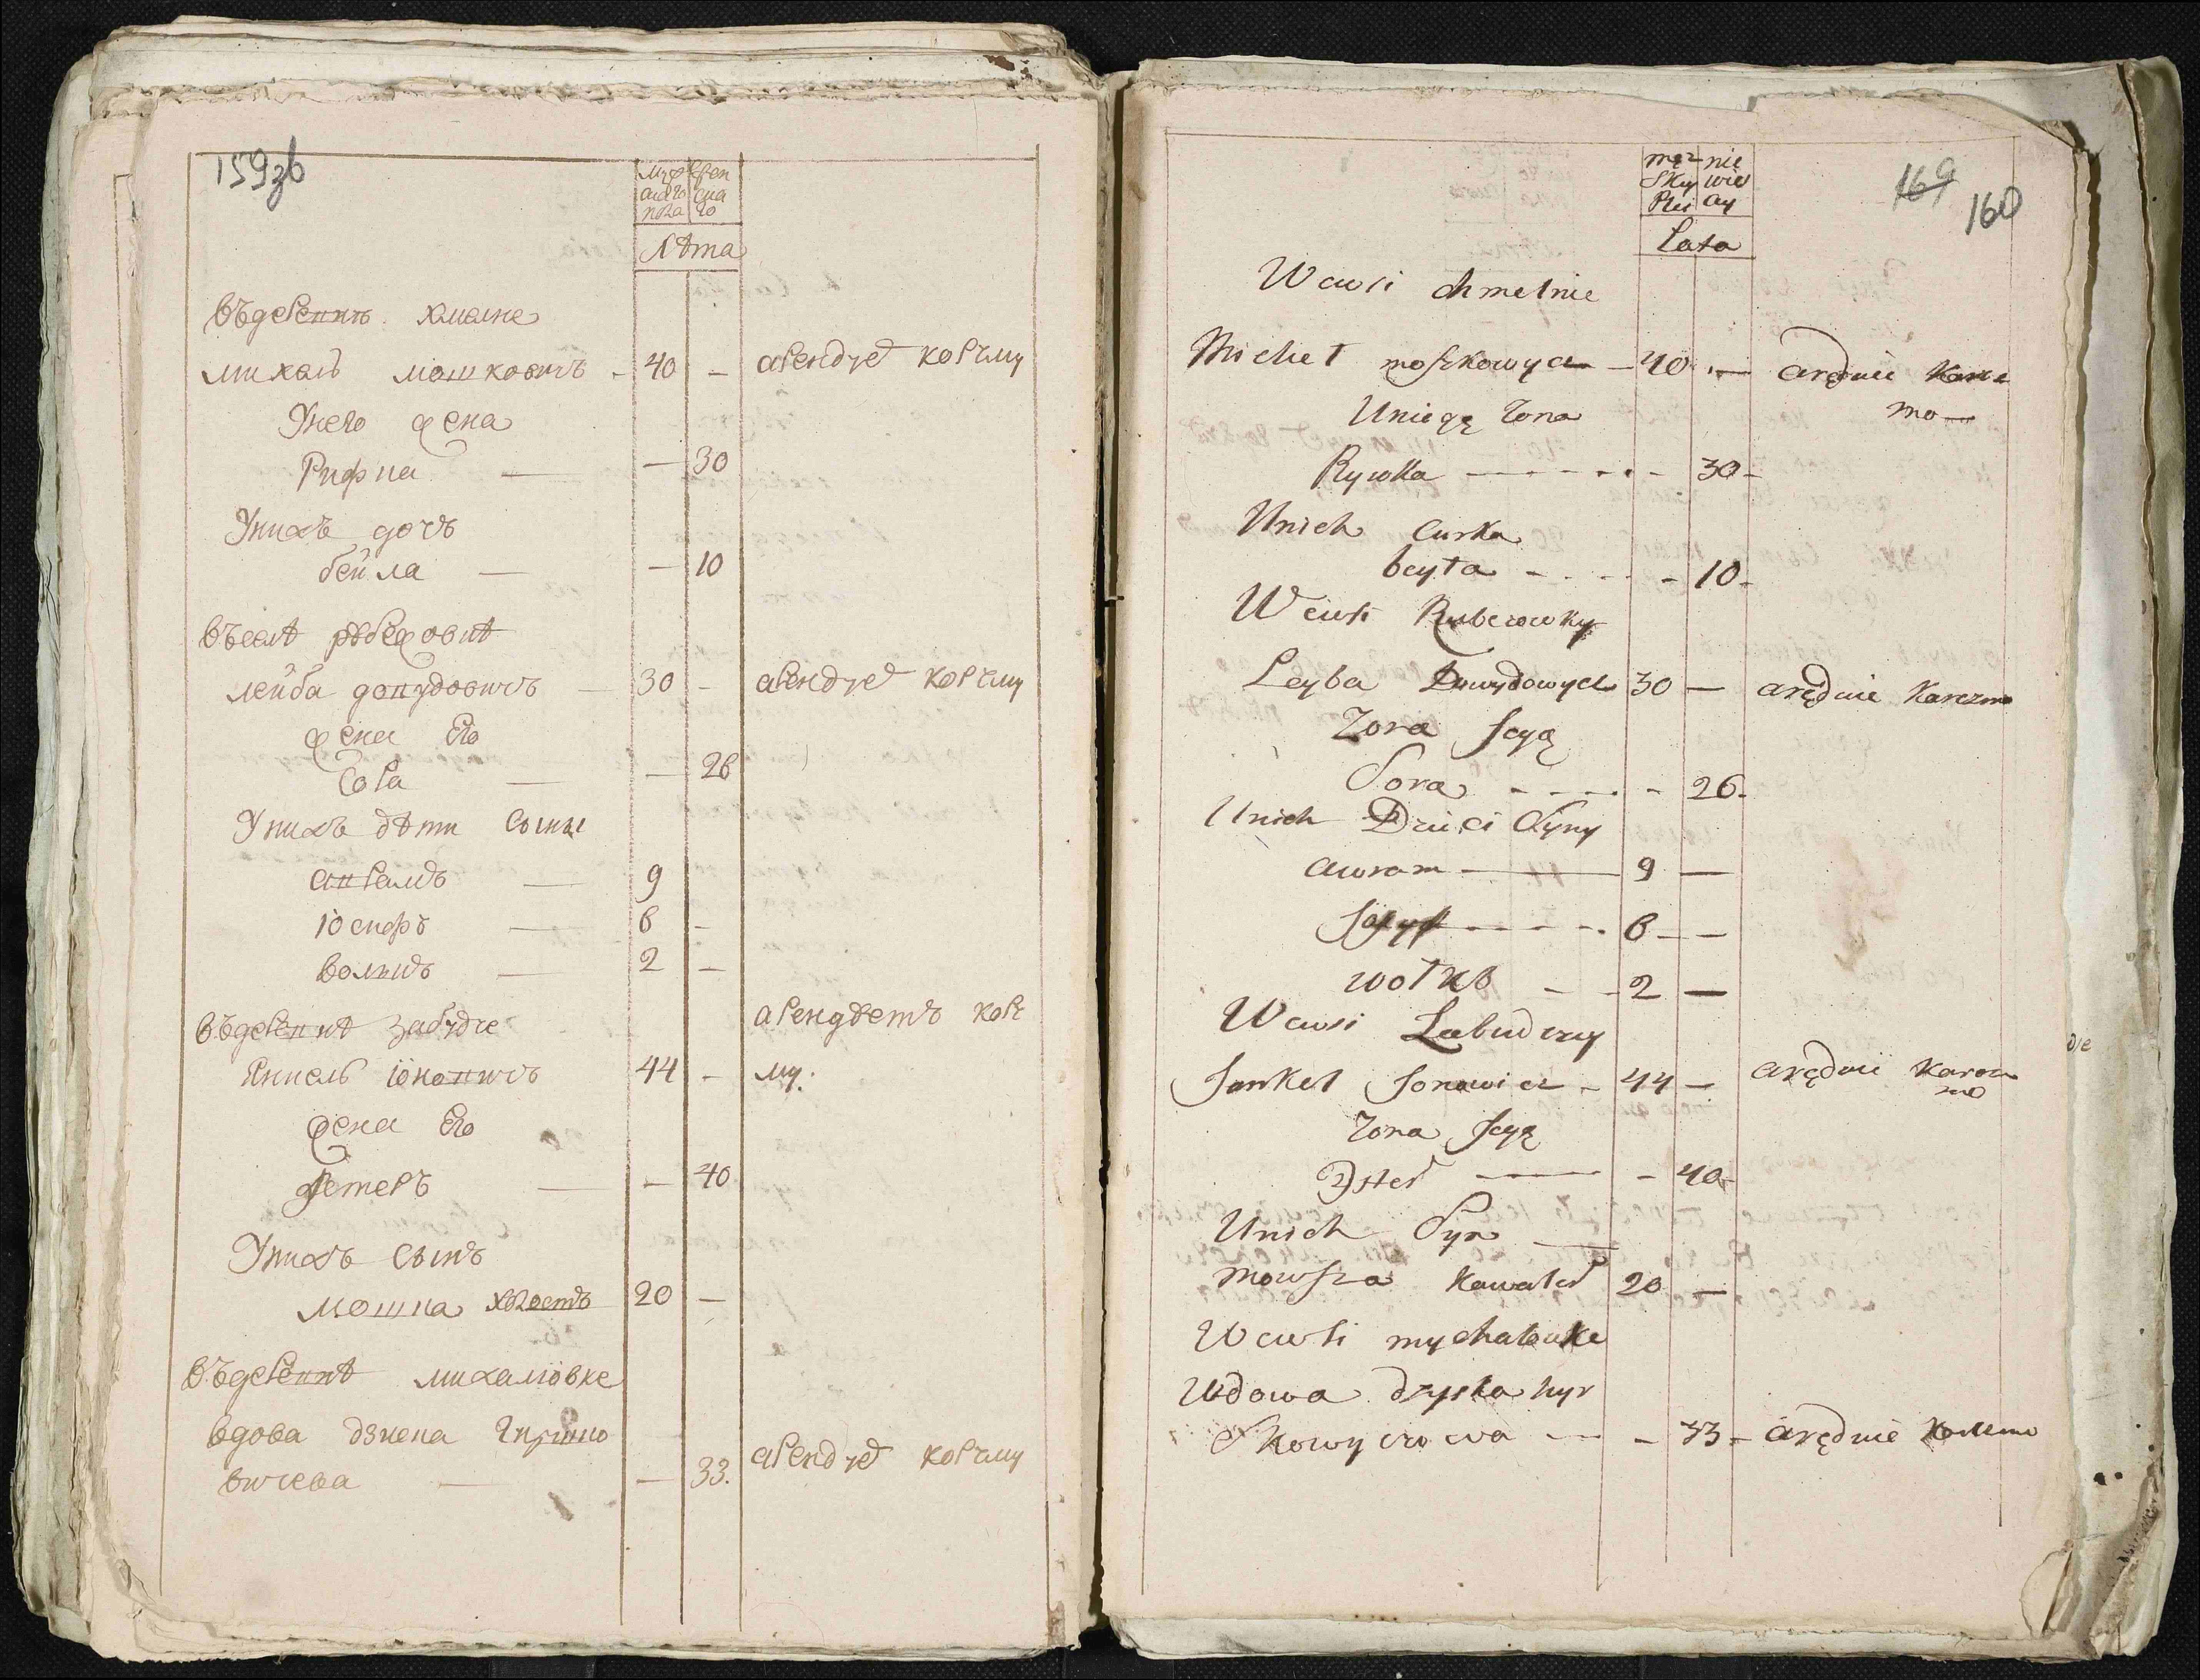 159зв
Муж жен
скаго ска
пола го
Лѣта
Въдеревнѣ хмелне
михель мошковичъ - 40 - арендуеT корчму
Унего жена
Рифка — — 30
Унихъ дочъ
бейла — — 10
Въселѣ
лейба довидовичъ — 30 - арендуеT корчму
жена Его
Сора — — 26
Унихъ дѣти Сыны
аврамъ — 9
Иосифъ — 6 -
волькъ — 2 -
Въдеревнѣ забудче арендѣетъ корч
Янкель Июновичъ 44 - му.
жена Его
эстеръ — - 40
Унихъ Сынъ
мошка холостъ 20 -
Въдеревнѣ михаловке
вдова дзнена гиршко
вичева — — 33. арендуеT корчму
męz nie
sky wies
Płci cy
169 160
Lata
Wewsi chmelnie
Michel moszkowycz - 40 - aręduie karcz
mo —
Uniegę zona
Rywka - - - - - 30 -
Unich curka
beyla - - - - 10 -
Wewsi Ruberowky
Leyba Dawydowycz 30 - aręduie karczmo
zona jegą
Sora - - - - 26 -
Unich Dzieci Syny
awram — 9 —
Josyf - - - - 6 - —
wolko - - 2 —
Wewsi Zabudczy
Jankel Jonowicz - 44 - aręduie karcz
mo
zona jegą
Ester — - 40 -
Unich Syn —
mowsza kawaler 20 —
Wewsi mychalowke
Wdowa dzyska hyr
szkowyczowa — - 33 - aręduie karczmo